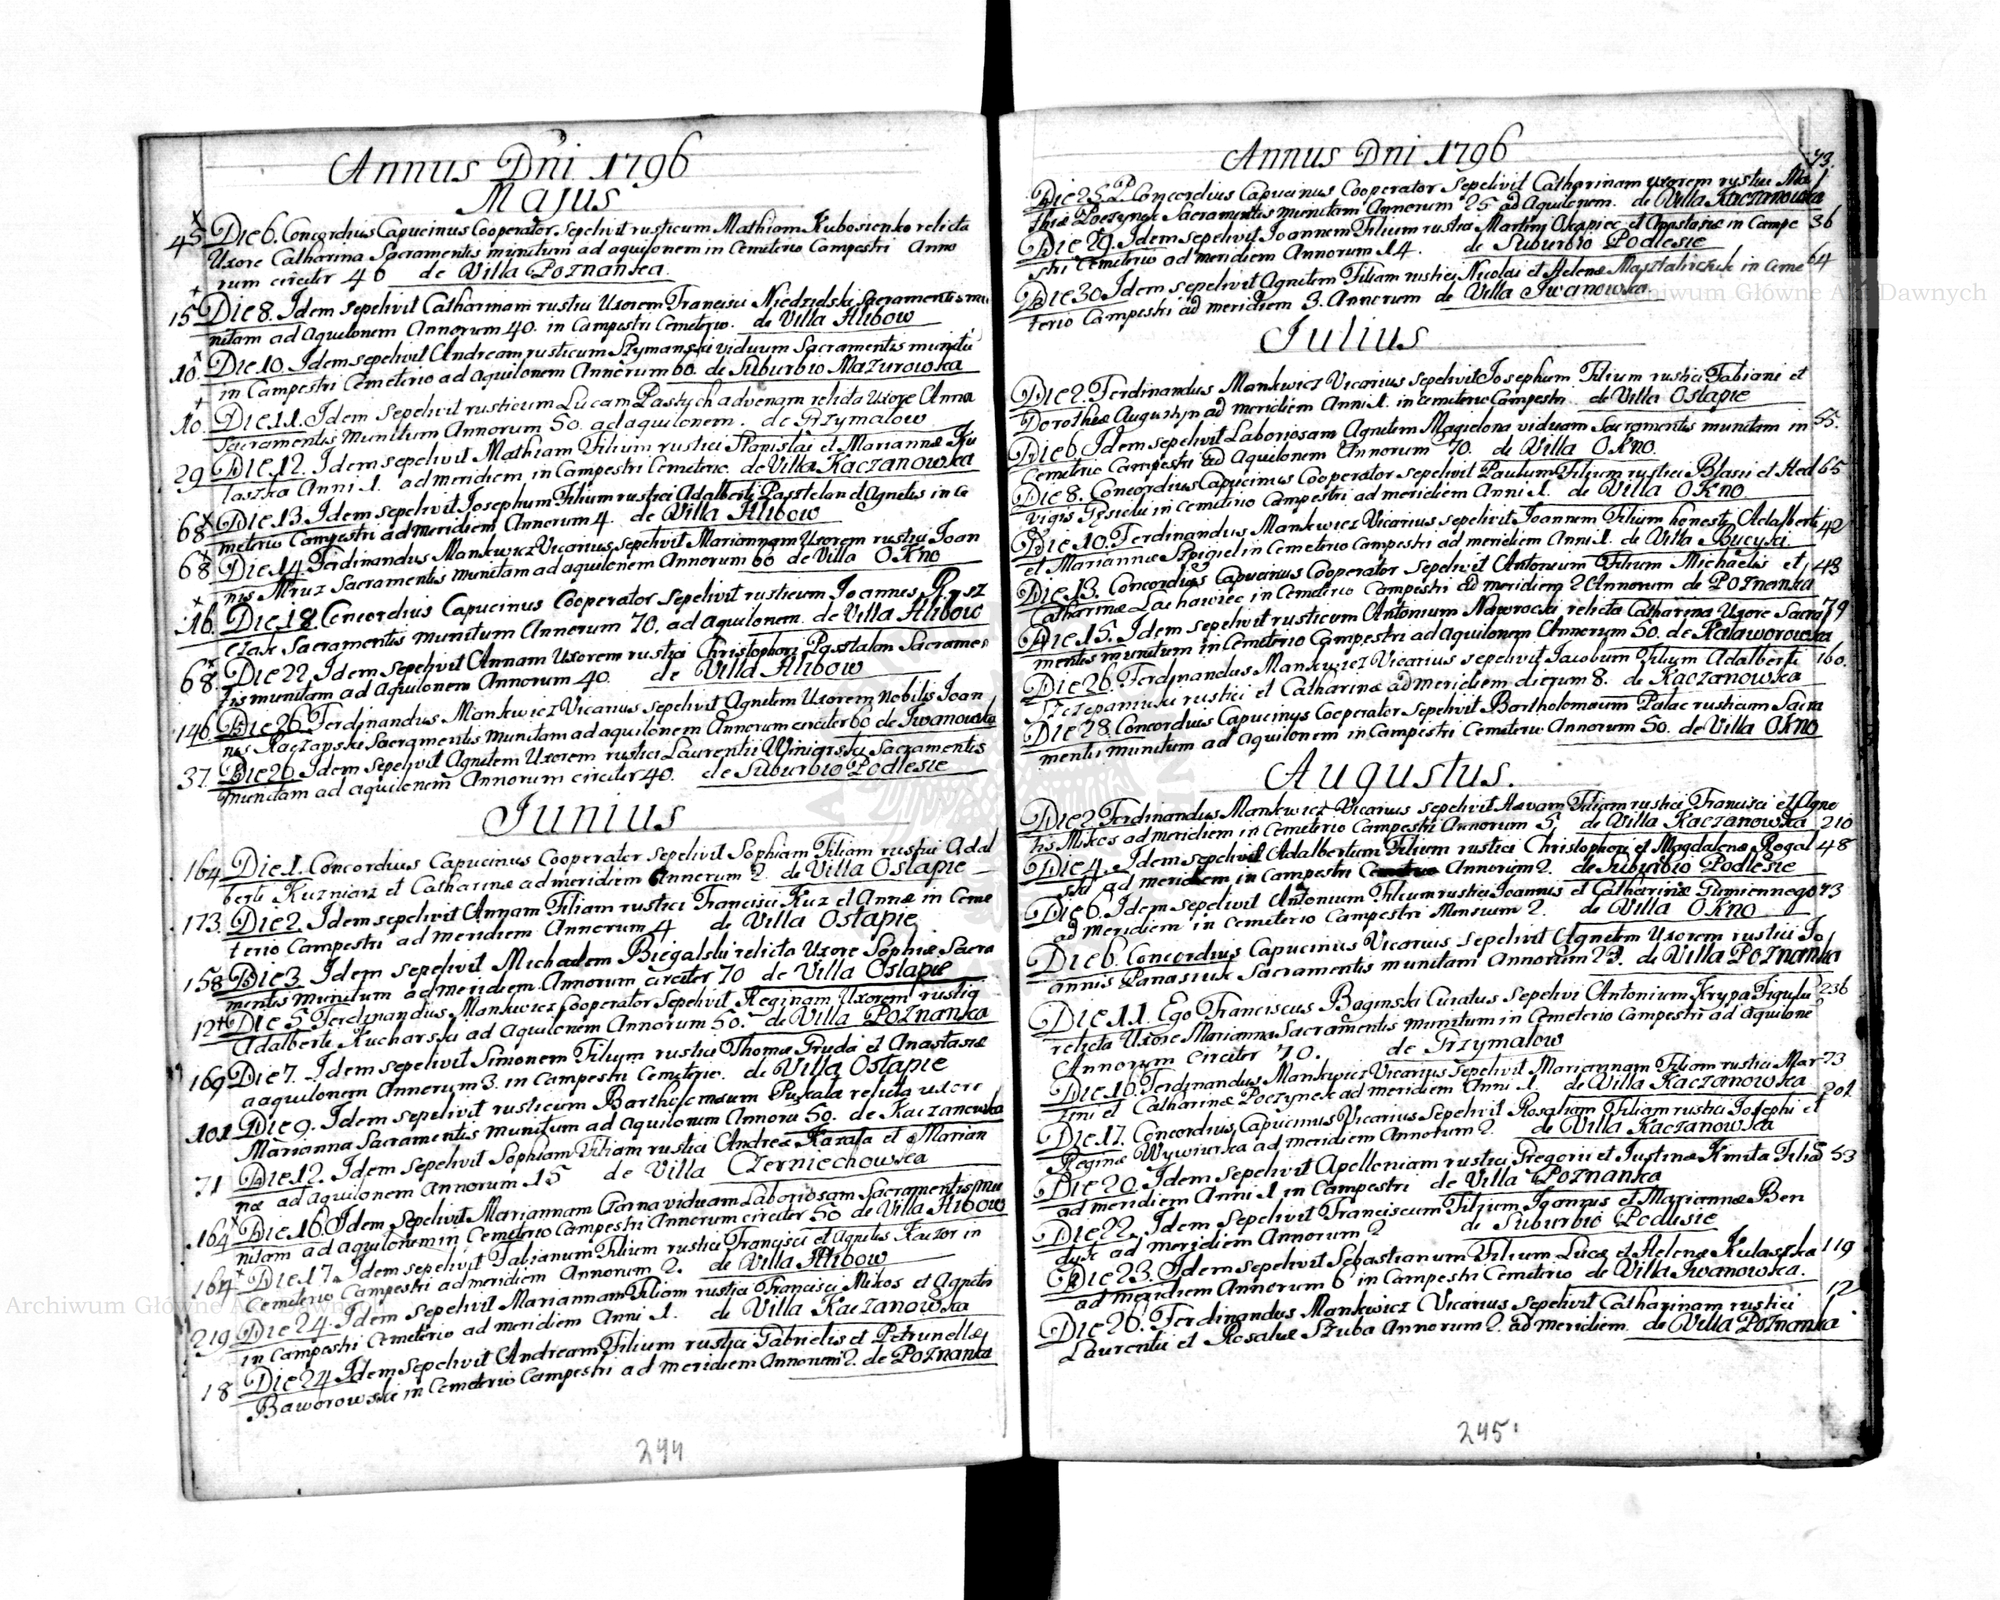 Annus Dni 1796
Majus
45 Die 6. Concordius Capucinus Cooperator Sepelivit rusticum Mathiam Kubosienko relicta
Uxore Catharina Sacramentis munitum ad aquilonem in Cemeterio Campestri Anno
rum circiter 46 de Villa Poznanka
15 Die 8. Idem sepelivit Catharinam rustici Uxorem Francisci Niedzielski Sacramentis mu
nitam ad Aquilonem Annorum 40. in Campestri Cemeterio. de Villa Hlibow
10. Die 10. Idem sepelivit Andream rusticum Szymanski viduum Sacramentis munitū
in Campestri Cemeterio ad aquilonem Annorum 60. de Suburbio Mazurowka
10. Die 11. Idem Sepelivit rusticum Lucam Pastych advenam relicta Uxore Anna
Sacramentis munitum Annorum 50. ad aquilonem. de Grzymalow
29 Die 12. Idem sepelivit Mathiam Filium rustici Stanislai et Mariannæ Ku
laszka Anni 1. ad meridiem in Campestri Cemeterio. de Villa Kaczanowka
68 Die 13. Idem sepelivit Josephum Filium rustici Adalberti Pasztelan et Agnetis in Ce
meterio Campestri ad meridiem Annorum 4. de Villa Hlibow
68 Die 14. Ferdinandus Mankwicz Vicarius sepelivit Mariannam Uxorem rustici Joan
nis Mruz Sacramentis munitam ad aquilonem Annorum 60 de Villa OKno
16. Die 18. Concordius Capucinus Cooperator Sepelivit rusticum Joannes
czak Sacramentis munitum Annorum 70. ad Aquilonem. de Villa Hlibow
68 Die 22. Idem sepelivit Annam Uxorem rustici Christophori Pasztalan Sacramen
tis munitam ad Aquilonem Annorum 40. de Villa Hlibow
146. Die 26. Ferdinandus Mankwicz Vicarius sepelivit Agnetem Uxorem nobilis Joan
nis Kaczanski Sacramentis munitam ad aquilonem Annorum circiter 60 de Iwanowka
37. Die 26. Idem sepelivit Agnetem Uxorem rustici Laurentii Winiarski Sacramentis
munitam ad aquilonem Annorum circiter 40. de Suburbio Podlesie
Junius
164 Die 1. Concordius Capucinus Cooperator Sepelivit Sophiam Filiam rustici Adal
berti Kuzniarz et Catharinæ ad meridiem Annorum 2. de Villa Ostapie
173. Die 2. Idem sepelivit Annam Filiam rustici Francisci Kuz et Annæ in Ceme
terio Campestri ad meridiem Annorum 4 de Villa Ostapie
158 Die 3. Idem sepelivit Michaelem Biegalski relicta Uxore Sophiæ Sacra
mentis munitum ad meridiem Annorum circiter 70 de Villa Ostapie
12 Die 5 Ferdinandus Mankwicz Cooperator Sepelivit Reginam Uxorem rustici
Adalberti Kucharski ad Aquilonem Annorum 50. de Villa Poznanka
169 Die 7. Idem sepelivit Simonem Filium rustici Thomæ Gruda et Anastasiæ
a aquilonem Annorum 3. in Campestri Cemeterio. de Villa Ostapie
101 Die 9. Idem sepelivit rusticum Bartholomæum Puskala relicta uxore
Marianna Sacramentis munitum ad Aquilonum Annoru 50. de Kaczanowka
71 Die 12. Idem Sepelivit Sophiam Filiam rustici Andreæ et Marian
næ ad aquilonem Annorum 15 de Villa Czerniechowka
164 Die 16. Idem Sepelivit Mariannam Czarna viduam Laboriosam Sacramentis mu
nitam ad aquilonem in Cemeterio Campestri Annorum circiter 50 de Villa Hlibow
164 Die 17. Idem sepelivit Fabianum Filium rustici Francisci et Agnetis Kaczor in
Cemeterio Campestri ad meridiem Annorum 2. de Villa Hlibow
219 Die 24. Idem Sepelivit Mariannam Filiam rustici Francisci Mikos et Agnetis
in Campestri Cemeterio ad meridiem Anni 1. de Villa Kaczanowka
18 Die 24 Idem sepelivit Andream Filium rustici Gabrielis et Petrunellæ
Baworowski in Cemeterio Campestri ad meridiem Annorum 2. de Poznanka
244
Annus Dni 1796
73.
Die 25. P. Concordius Capucinus Cooperator Sepelivit Catharinam uxorem rustici Ma
thiæ Poczynek Sacramentis munitam Annorum 25 ad Aquilonem. de Villa Kaczanowka
Die 29. Idem sepelivit Joannem Filium rustici Martini Okapiec et Anastasiæ in Campe 36
stri Cemeterio ad meridiem Annorum 14. de Suburbio Podlesie
Die 30 Idem sepelivit Agnetem Filiam rustici Nicolai et Helenæ Masztalirchuk in Ceme 64
terio Campestri ad meridiem 3. Annorum de Villa Iwanowka
Julius
Die 2. Ferdinandus Mankwicz Vicarius sepelivit Josephum Filium rustici Fabiani et
Dorotheæ Augustyn ad meridiem Anni 1. in cemeterio Campestri de Villa Ostapie
Die 6. Idem sepelivit Laboriosam Agnetem Magielona viduam Sacramentis munitam in 55.
Cemeterio Campestri ad Aquilonem Annorum 70. de Villa OKno.
Die 8. Concordius Capucinus Cooperator sepelivit Paulum Filium rustici Blasii et Hed 65
vigis in Cemeterio Campestri ad meridiem Anni 1. de Villa OKno
Die 10. Ferdinandus Mankwicz Vicarius sepelivit Joannem Filium honesti Adalberti 42
et Mariannæ Szpigiel in Cemeterio Campestri ad meridiem Anni 1. de Villa Bucyki
Die 13. Concordius Capucinus Cooperator Sepelivit Antonium Filium Michaelis et 43
Catharinæ Lachawiec in Cemeterio Campestri ad meridiem 2 Annorum de Poznanka
Die 15. Idem sepelivit rusticum Antonium Naworocki relicta Catharina Uxore Sacra 79
mentis munitum in Cemeterio Campestri ad aquilonem Annorum 50. de Kalaworowka
Die 26. Ferdinandus Mankwicz Vicarius sepelivit Jacobum Filium Adalberti 160.
Szczepaniuki rustici et Catharinæ ad meridiem dierum 8. de Kaczanowka
Die 28. Concordius Capucinus Cooperator Sepelivit Bartholomæum Palac rusticum Sacra
mentis munitum ad Aquilonem in Campestri Cemeterio Annorum 50. de Villa OKno
Augustus.
Die 2 Ferdinandus Mankwicz Vicarius sepelivit Hevam Filiam rustici Francisci et Agne
tis Mikos ad meridiem in Cemeterio Campestri Annorum 5 de Villa Kaczanowka 210
Die 4. Idem sepelivit Adalbertum Filium rustici Christophori et Magdalenæ Rogal 48
ski ad meridiem in Campestri Cemeterio Annorum 2. de Suburbio Podlesie
Die 6. Idem sepelivit Antonium Filium rustici Joannis et Catharinæ Gumiennego 73
ad meridiem in Cemeterio Campestri Mensium 2. de Villa OKno
Die 6. Concordius Capucinus Vicarius sepelivit Agnetem Uxorem rustici Jo
annis Panasiuk Sacramentis munitam Annorum 23. de Villa Poznanka
Die 11. Ego Franciscus Baginski Curatus Sepelivi Antonium Krypa Figulu 236
relicta Uxore Marianna Sacramentis munitum in Cemeterio Campestri ad aquilone
Annorum Circiter 70. de Grzymalow
Die 16. Ferdinandus Mankwicz Vicarius Sepelivit Mariannam Filiam rustici Mar 73
tini et Catharinæ Poczynek ad meridiem Anni 1. de Villa Kaczanowka
Die 17. Concordius Capucinus Vicarius Sepelivit Rosaliam Filiam rustici Josephi et 201
Reginæ Wywiurka ad meridiem Annorum 2. de Villa Kaczanowka
Die 20. Idem Sepelivit Apolloniam rustici Gregorii et Justinæ Kmita Filia 53
ad meridiem Anni 1 in Campestri de Villa Poznanka
Die 22. Idem Sepelivit Franciscum Filium Joannis et Mariannæ Ben
dyk ad meridiem Annorum 2 de Suburbio Podlesie
Die 23. Idem sepelivit Sebastianum Filium Lucæ et Helenæ Kulaszka 119
ad meridiem Annorum 6 in Campestri Cemeterio de Villa Iwanowka.
Die 26. Ferdinandus Mankwicz Vicarius Sepelivit Catharinam rustici 12
Laurentii et Rosaliæ Szuba Annorum 2. ad meridiem. de Villa Poznanka
245
Archiwum Główne Akt Dawnych
Archiwum Główne Akt Dawnych